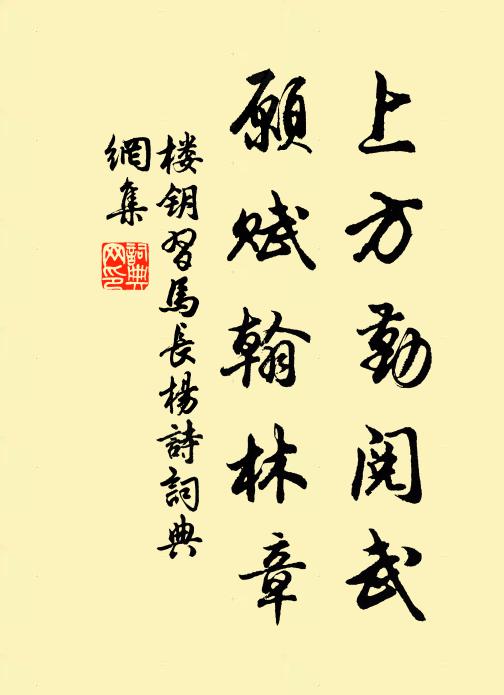 上方勤阅武
願赋翰林章
楼钥習馬長楊詩詞典
網集
詞典
网印